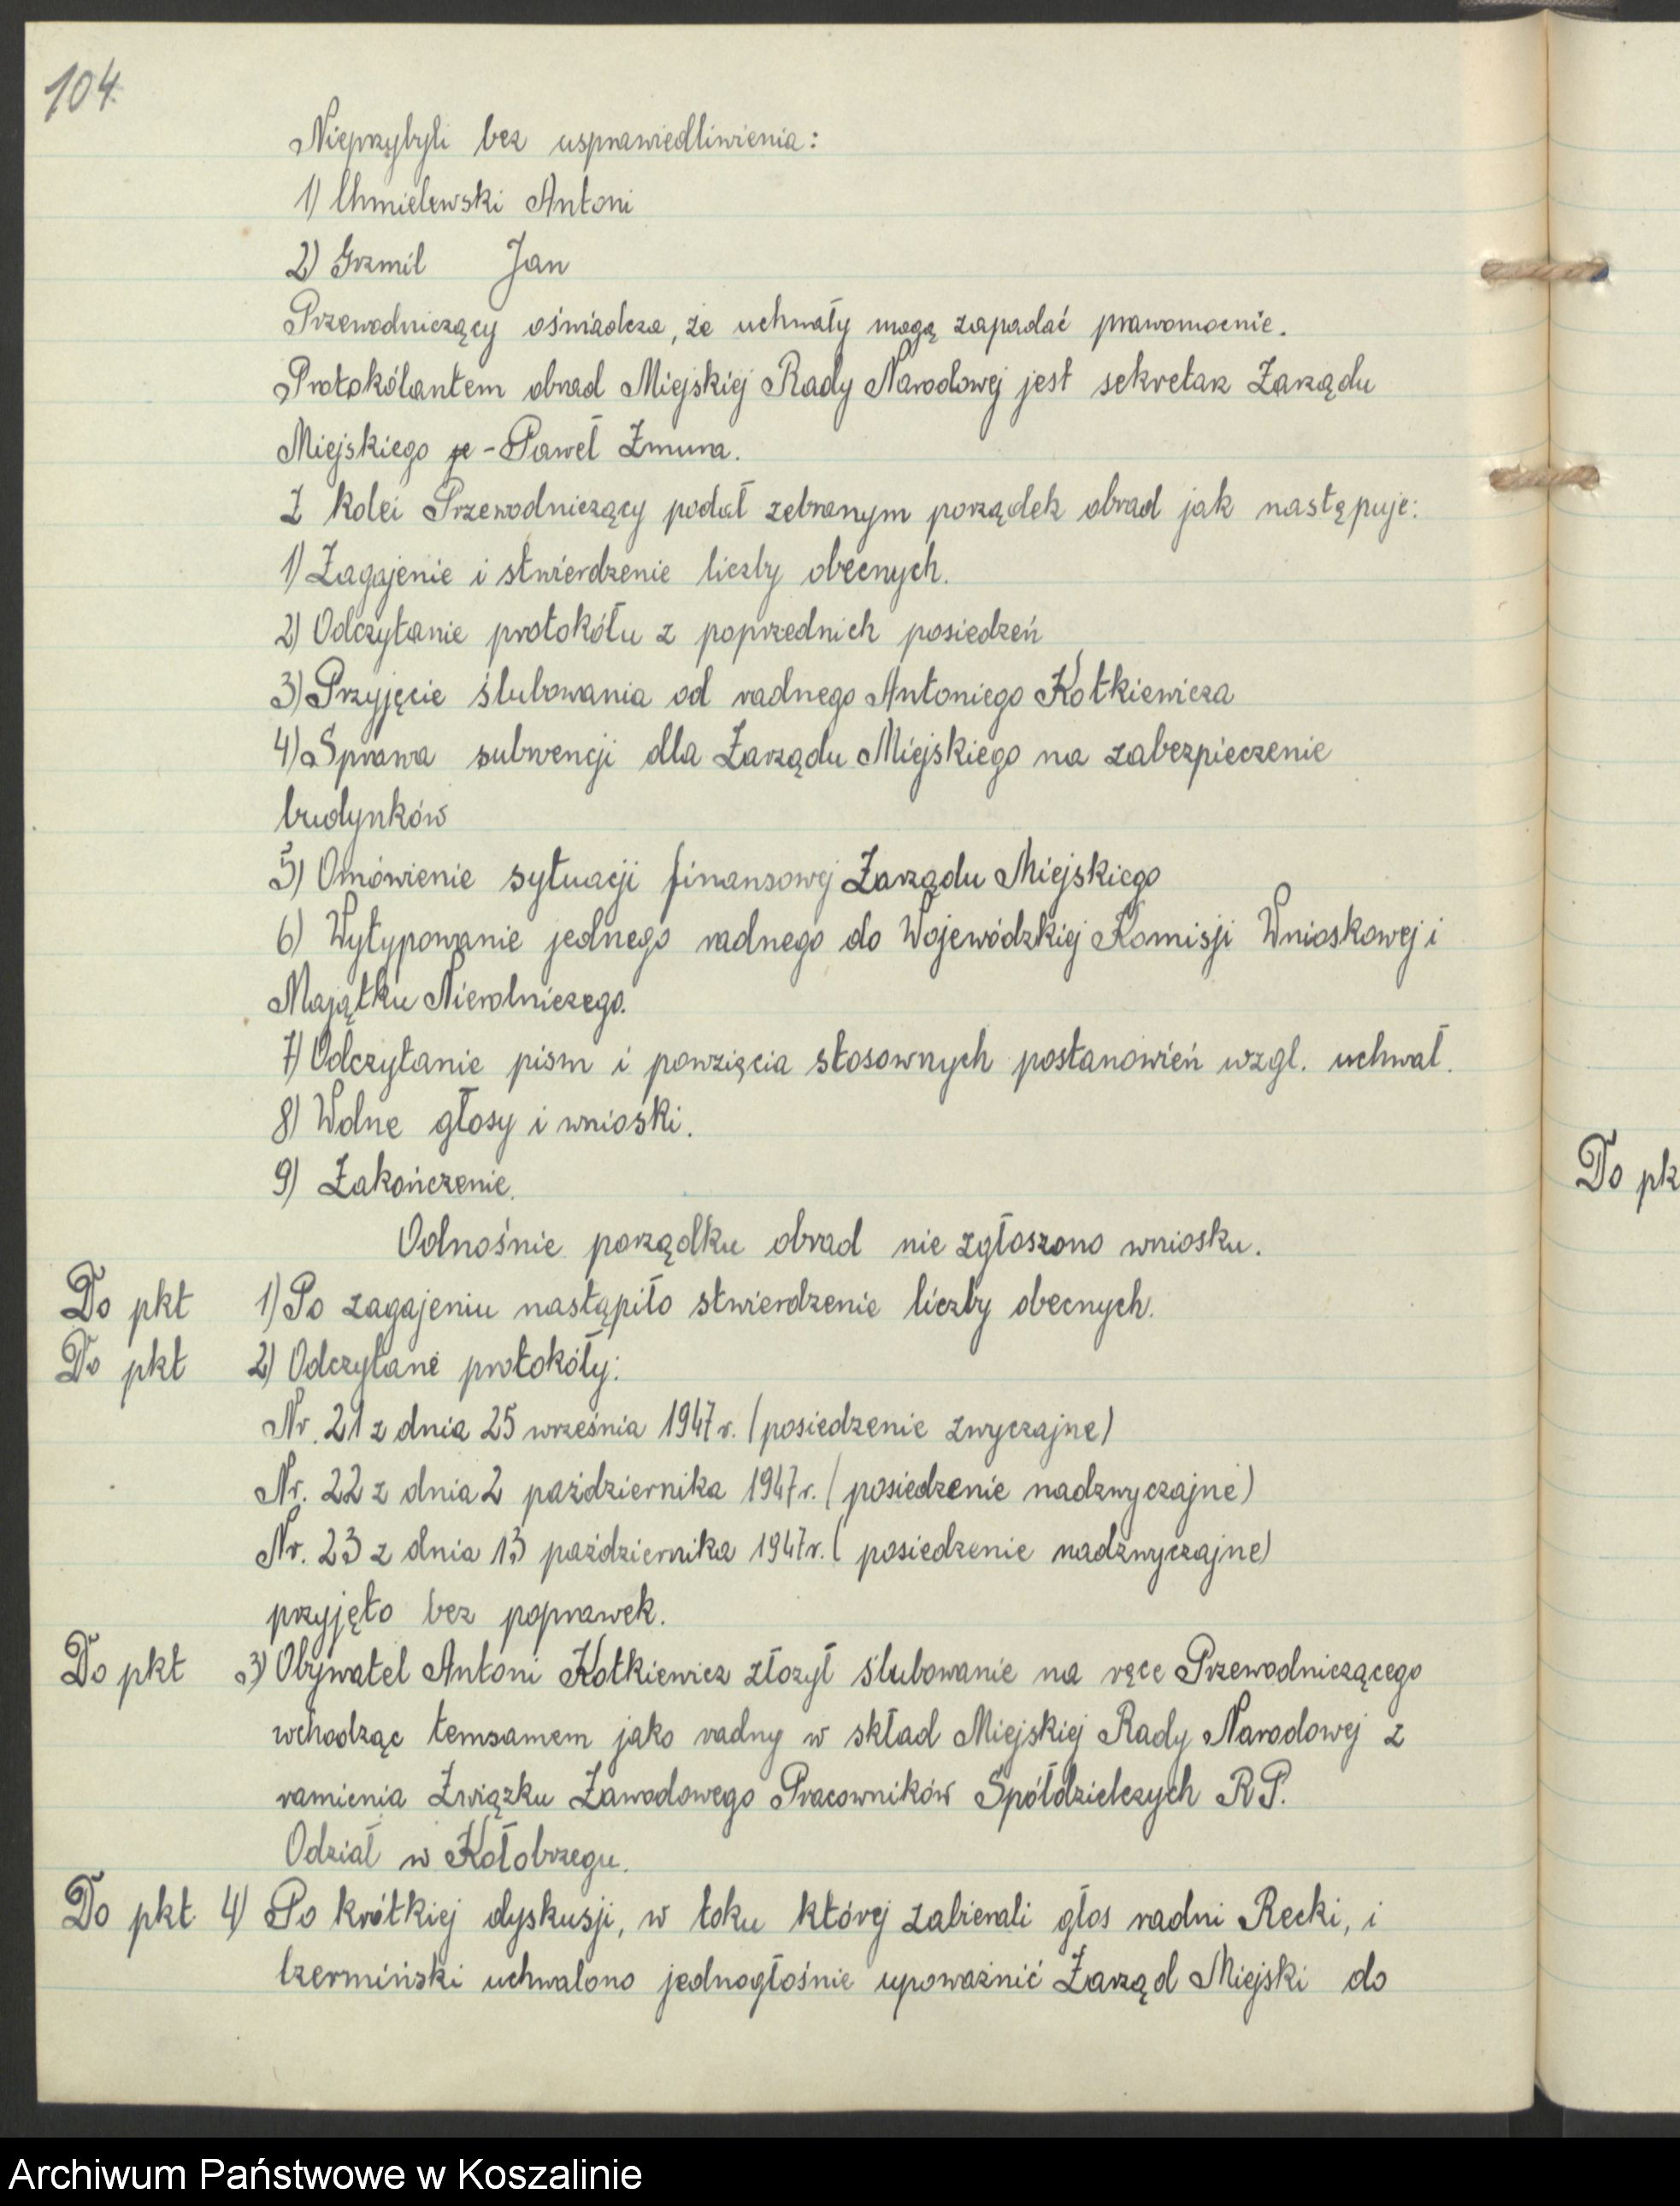 104.
Nieprzybyli bez usprawiedliwienia:
1) Chmielewski Antoni
2) Grzmil Jan
Przewodniczący oświadcza, że uchwały mogą zapadać prawomocnie.
Protokólantem obrad Miejskiej Rady Narodowej jest sekretarz Zarządu
Miejskiego - Paweł Żmura.
Z kolei Przewodniczący podał zebranym porządek obrad jak następuje:
1) Zagajenie i stwierdzenie liczby obecnych.
2) Odczytanie protokółu z poprzednich posiedzeń
3) Przyjęcie ślubowania od radnego Antoniego Kotkiewicza
4) Sprawa subwencji dla Zarządu Miejskiego na zabezpieczenie
budynków
5) Omówienie sytuacji finansowej Zarządu Miejskiego
6) Wytypowanie jednego radnego do Wojewódzkiej Komisji Wnioskowej i
Majątku Nierolniczego.
7) Odczytanie pism i powzięcia stosownych postanowień wzgl. uchwał.
8) Wolne głosy i wnioski.
9) Zakończenie.
Odnośnie porządku obrad nie zgłoszono wniosku.
Do pkt 1) Po zagajeniu nastąpiło stwierdzenie liczby obecnych.
Do pkt 2) Odczytane protokóły:
Nr. 21 z dnia 25 września 1947 r. (posiedzenie zwyczajne)
Nr. 22 z dnia 2 października 1947 r. (posiedzenie nadzwyczajne)
Nr. 23 z dnia 13 października 1947 r. (posiedzenie nadzwyczajne)
przyjęto bez poprawek.
Do pkt 3) Obywatel Antoni Kotkiewicz złożył ślubowanie na ręce Przewodniczącego
wchodząc temsamem jako radny w skład Miejskiej Rady Narodowej z
ramienia Związku Zawodowego Pracowników Spółdzielczych R.P.
Odział w Kołobrzegu.
Do pkt. 4) Po krótkiej dyskusji, w toku której zabierali głos radni Recki, i
Czermiński uchwalono jednogłośnie upoważnić Zarząd Miejski do
Do pk
Archiwum Państwowe w Koszalinie